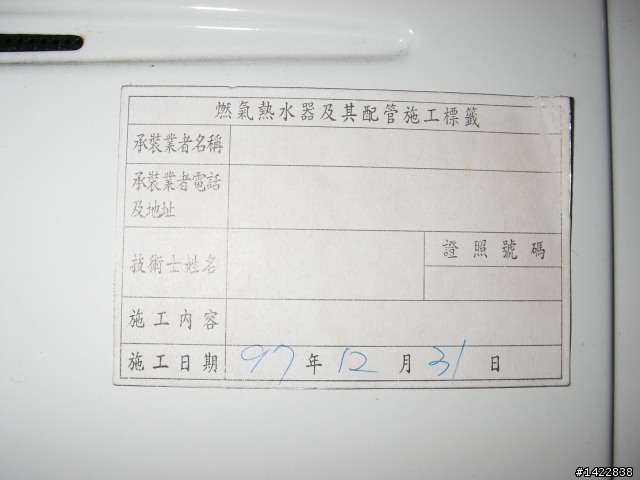 燃氣熱水器及其配管施工標籤
承裝業者名稱
承裝業者電話
及地址
技術士姓名
證照號碼
施工內容
施工日期 97年12月31日
#1422838